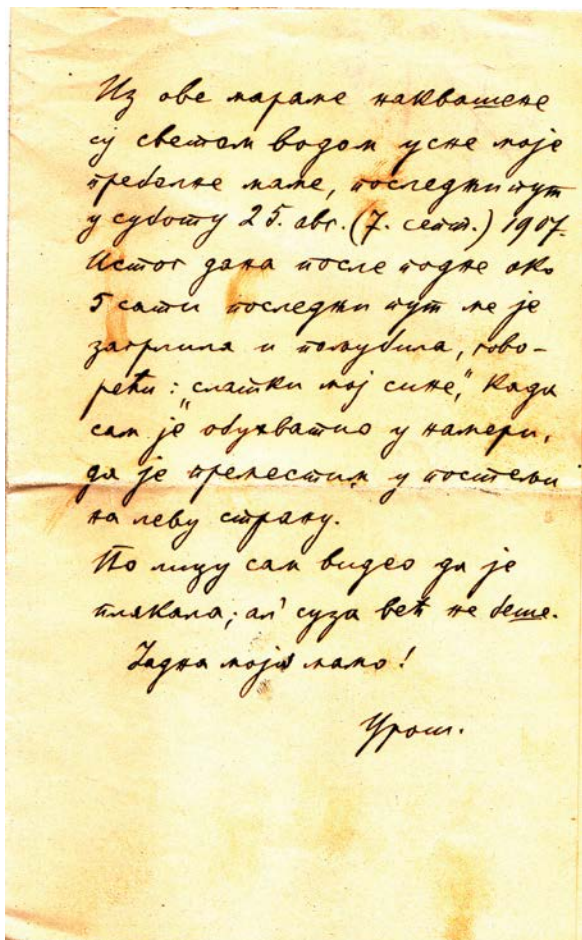 Из ове мараме наквашене
су светом водом усне моје
пребелне маме, последњи пут
у суботу 25. авг. (7. септ.) 1907.
Истог дана после подне око
5 сати последњи пут ме је
загрлила и пољубила, гово-
рећи: „слатки мој сине," када
сам је обухватио у намери,
да је преместим у постељи
на леву страну.
По лицу сам видео да је
плакала; ал' суза већ не беше.
Јадна моја мамо!
Урош.